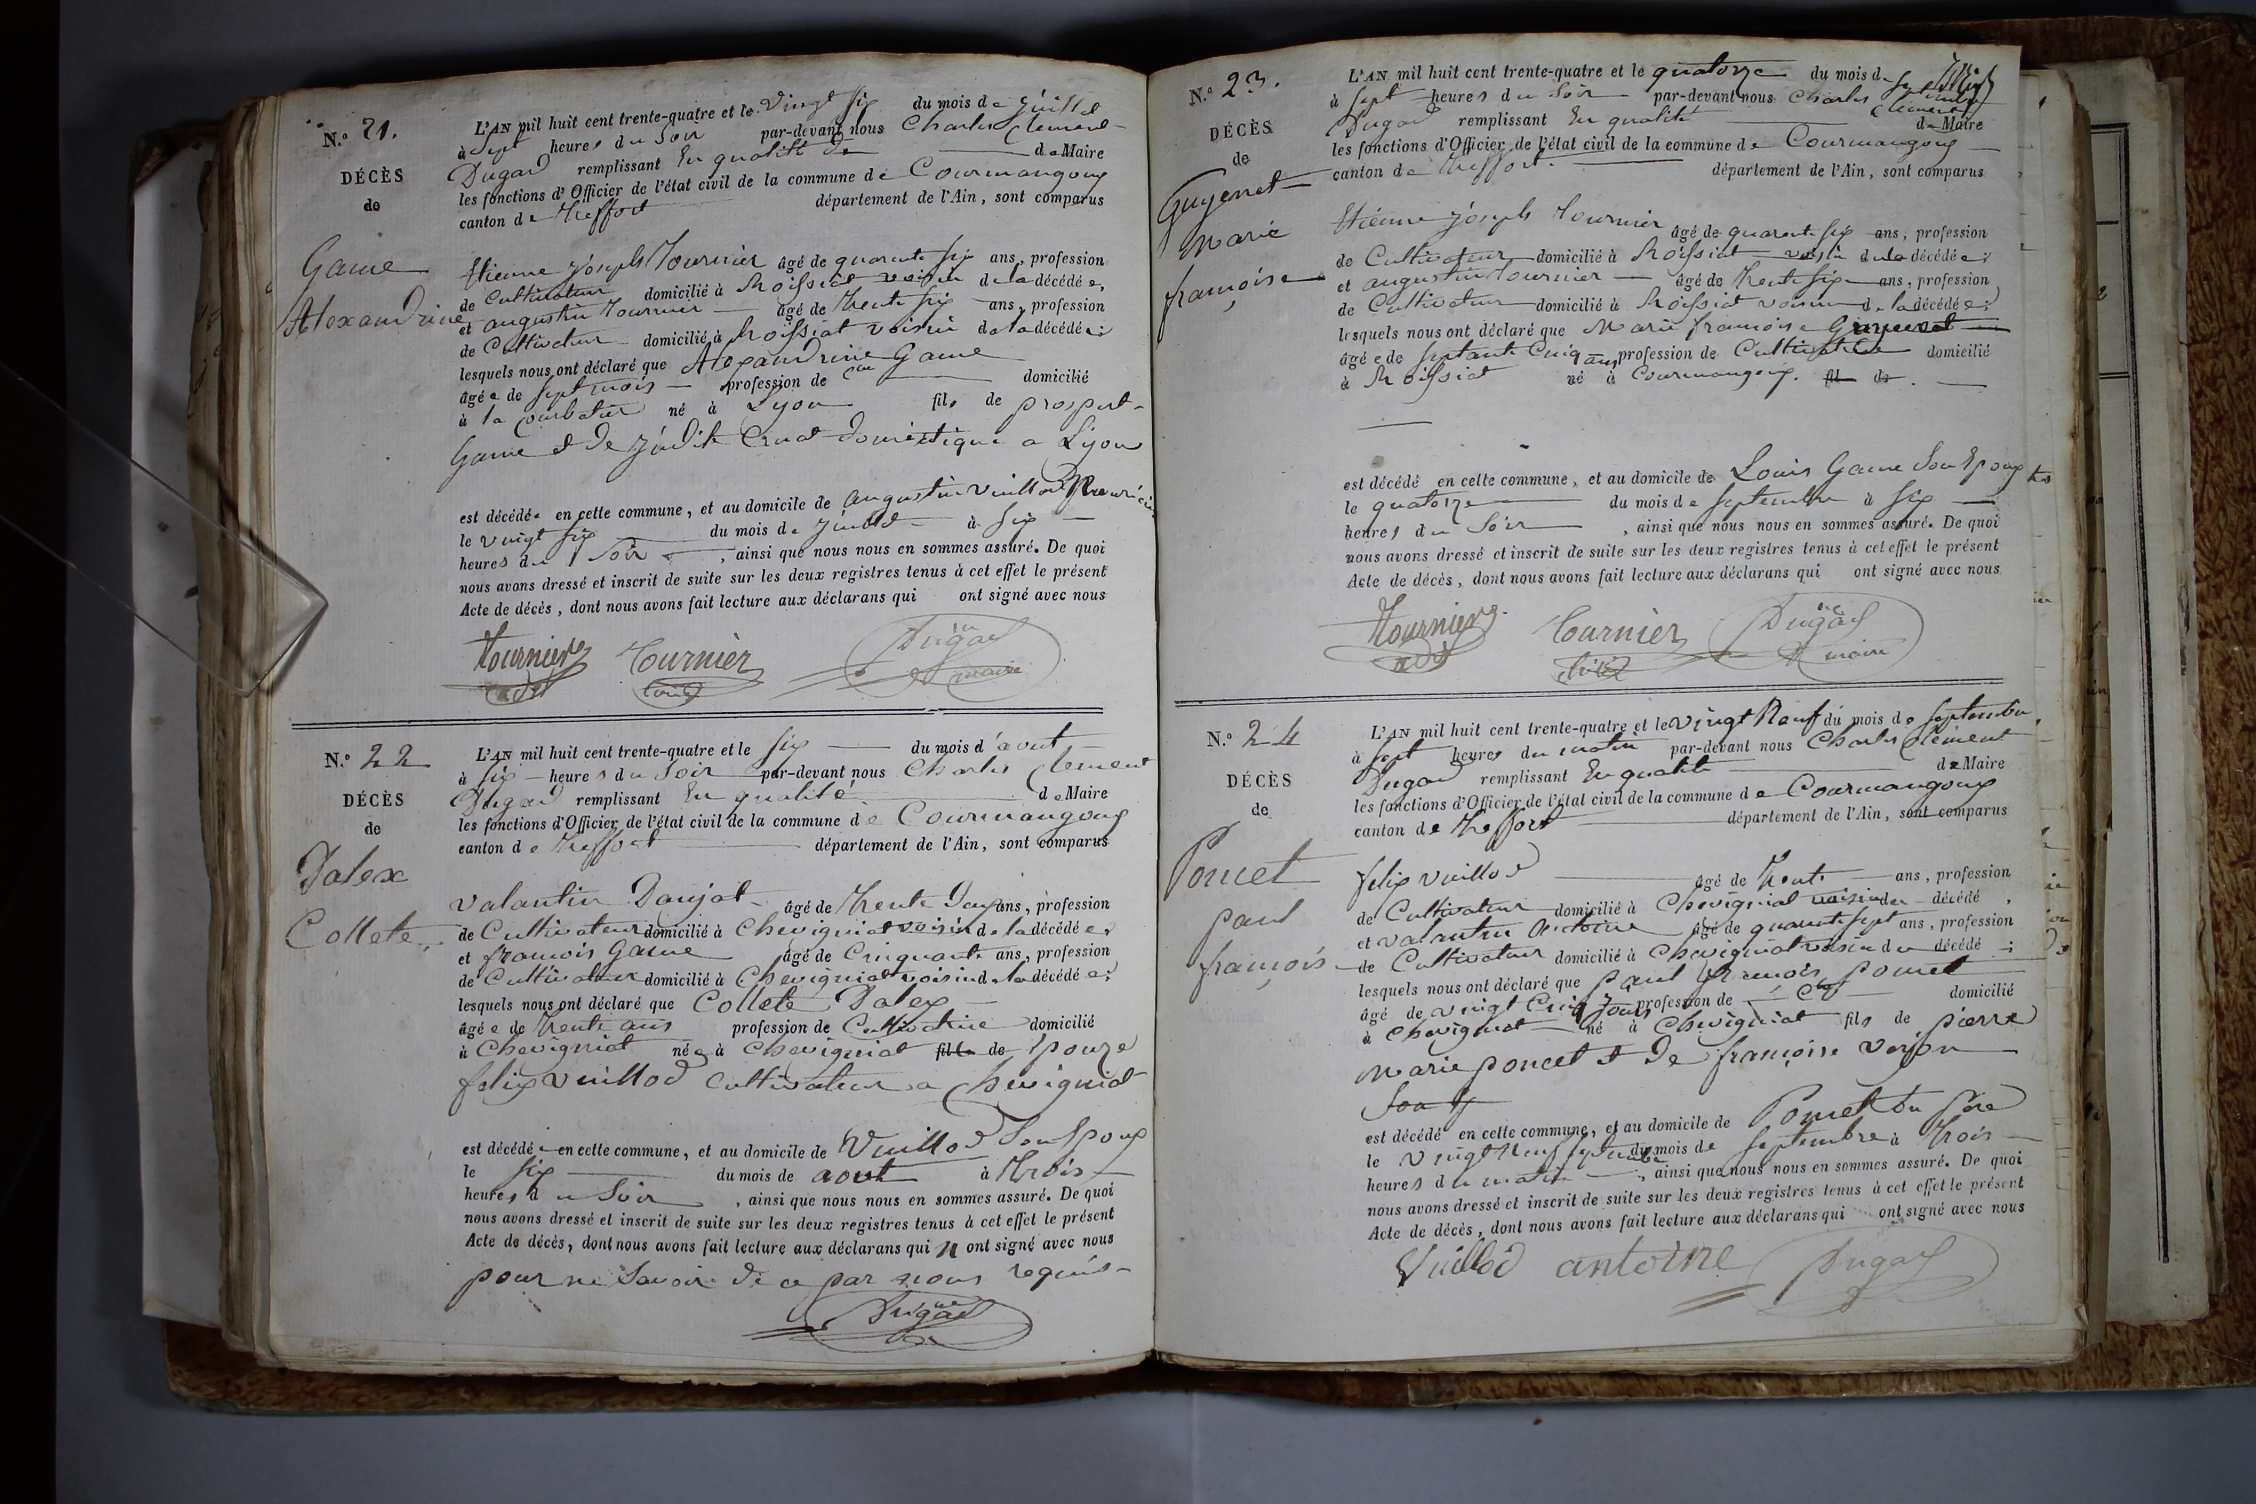 N.º 21.
DÉCÈS
de
Game
Alexandrine
L'AN mil huit cent trente-quatre et le vingt six du mois de juillet
à sept heures du soir par-devant nous Charles Clement
Dugad remplissant En qualité de de Maire
les fonctions d'Officier de l'état civil de la commune de Courmangoux
canton de treffort département de l'Ain, sont comparus
Etienne joseph tournier âgé de quarante six ans, profession
de Cultivateur domicilié à Roissiat voisin de la décédée,
et augustin tournier âgé de trente six ans, profession
de Cultivateur domicilié à Roissiat voisin de la décédée;
lesquels nous ont déclaré que Alexandrine Game
âgée de sept mois profession de domicilié
à la né à Lyon fils de prospert
Game et de judith Cruat domestique a Lyon
est décédée en cette commune, et au domicile de augustin vuillod
le vingt six du mois de juillet à six
heures du soir, ainsi que nous nous en sommes assuré. De quoi
nous avons dressé et inscrit de suite sur les deux registres tenus à cet effet le présent
Acte de décès, dont nous avons fait lecture aux déclarans qui ont signé avec nous
Tournier Tournier Dugad
maire
N.º 22
DÉCÈS
de
Dalex
Collete
L'AN mil huit cent trente-quatre et le six du mois d'aout
à six heures du soir par-devant nous Charles Clement
Dugad remplissant En qualité de Maire
les fonctions d'Officier de l'état civil de la commune de Courmangoux
canton de treffort département de l'Ain, sont comparus
valantin Danjat âgé de trente ans, profession
de Cultivateur domicilié à Chevigniat voisin de la décédée,
et francois Game âgé de Cinquante ans, profession
de Cultivateur domicilié à Chevigniat voisin de la décédée;
lesquels nous ont déclaré que Collete Dalex
âgée de trente ans profession de Cultivatrice domicilié
à Chevigniat née à Chevigniat fille de Epouze
felix vuillod Cultivateur a Chevigniat
est décédée en cette commune, et au domicile de Vuillod Son Epoux
le six du mois de aout à trois
heures du Soir, ainsi que nous nous en sommes assuré. De quoi
nous avons dressé et inscrit de suite sur les deux registres tenus à cet effet le présent
Acte de décès, dont nous avons fait lecture aux déclarans qui n ont signé avec nous
pour ne Savoir de ce par nous requis
Dugad
N.º 23.
DÉCÈS
de
Guyenet
Marie
françoise
L'AN mil huit cent trente-quatre et le quatorze du mois de septembre
à sept heures du Soir par-devant nous Charles Clement
Dugad remplissant En qualité de Maire
les fonctions d'Officier de l'état civil de la commune de Courmangoux
canton de treffort département de l'Ain, sont comparus
Etienne joseph tournier âgé de quarante six ans, profession
de Cultivateur domicilié à Roissiat voisin de la décédée;
et augustin tournier âgé de trente six ans, profession
de Cultivateur domicilié à Roissiat voisin de la décédée;
lesquels nous ont déclaré que Marie francoise Guyenet
âgée de septante Cinq ans profession de Cultivatrice domicilié
à Roissiat né à Courmangoux. fil de
est décédé en cette commune, et au domicile de Louis Game Son Epoux
le quatorze du mois de septembre à six
heures du Soir, ainsi que nous nous en sommes assuré. De quoi
nous avons dressé et inscrit de suite sur les deux registres tenus à cet effet le présent
Acte de décès, dont nous avons fait lecture aux déclarans qui ont signé avec nous
Tournier Tournier Dugad
maire
N.º 24
DÉCÈS
de
Poncet
paul
françois
L'AN mil huit cent trente-quatre et le vingt Neuf du mois de septembre
à sept heures du matin par-devant nous Charles Clement
Dugad remplissant En qualité de Maire
les fonctions d'Officier de l'état civil de la commune de Courmangoux
canton de treffort département de l'Ain, sont comparus
felix vuillod âgé de trente ans, profession
de Cultivateur domicilié à Chevigniat voisin du décédé,
et valantin Antoine âgé de quarante sept ans, profession
de Cultivateur domicilié à Chevigniat voisin du décédé;
lesquels nous ont déclaré que paul francois poncet
âgé de vingt Cinq jours profession de domicilié
à Chevigniat né à Chevigniat fils de pierre
Marie poncet et de françoise
Son
est décédé en cette commune, et au domicile de Poncet Son père
le vingt Neuf septembre du mois de septembre à trois
heures du matin, ainsi que nous nous en sommes assuré. De quoi
nous avons dressé et inscrit de suite sur les deux registres tenus à cet effet le présent
Acte de décès, dont nous avons fait lecture aux déclarans qui ont signé avec nous
Vuillod antoine Dugad